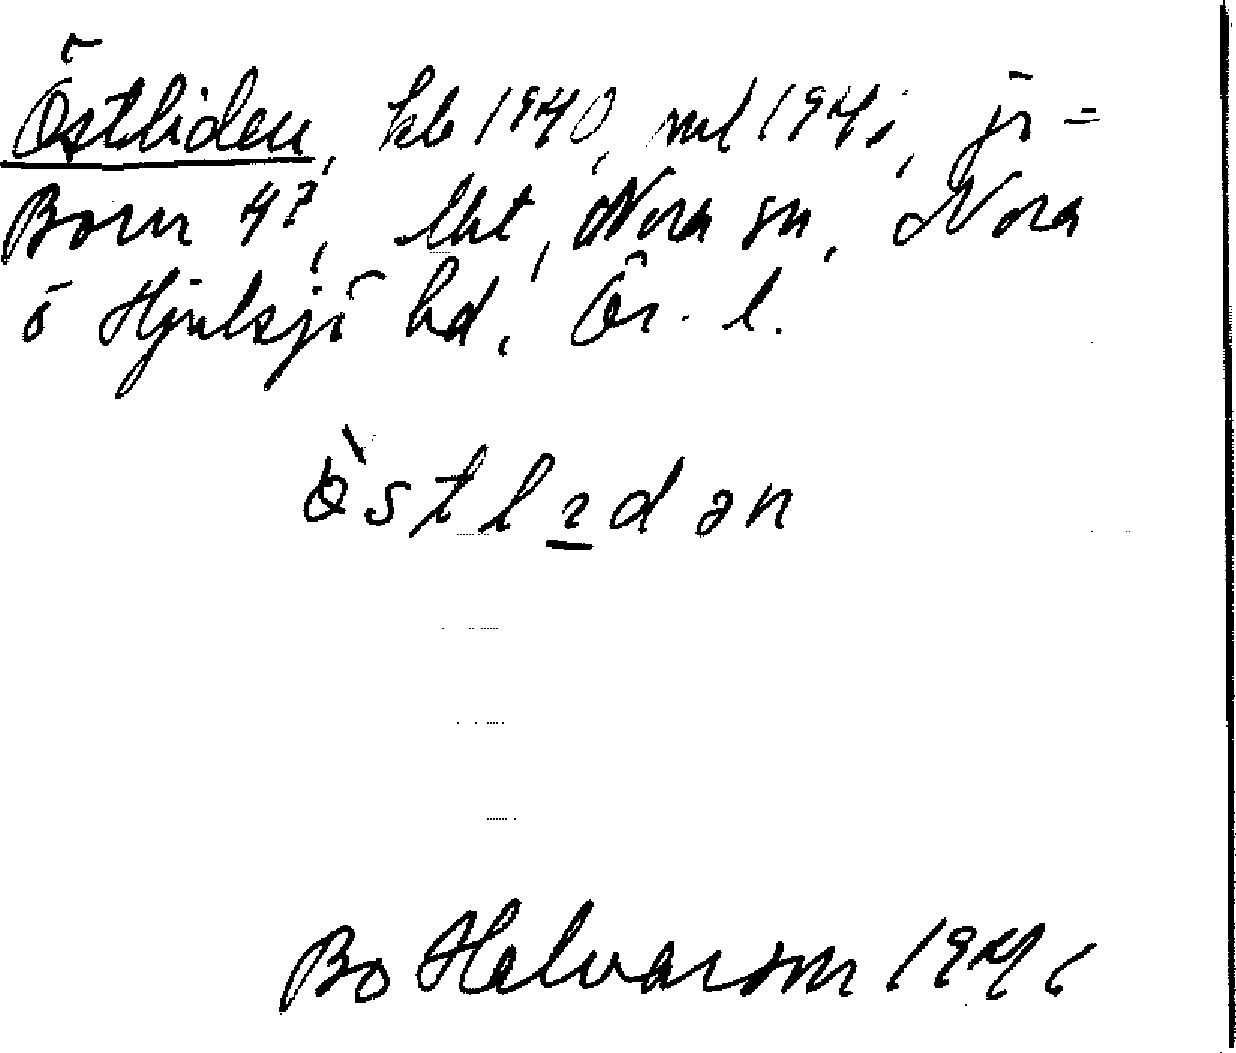 Östliden, kb 1940, ml 1941, jr =
Born 4?, lht, Nora sn, Nora
o Hjulsjö hd, Ör. l.
östlıdən
Bo Halvarson 1941